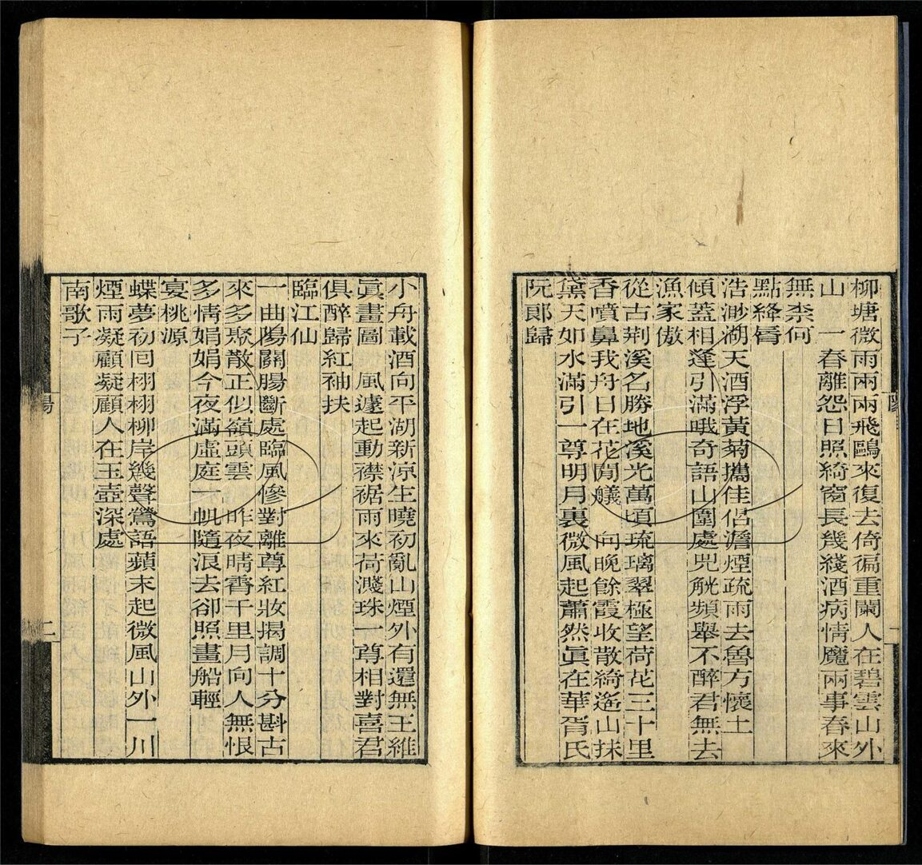 柳塘微雨兩兩飛鷗來復去倚徧重闌人在碧雲山外
山　一春離怨日照綺窗長幾綫酒病情魔兩事春來
無柰何
點絳脣
浩渺湖天酒浮黃菊攜佳侶澹煙疏雨去魯方懷土
傾蓋相逢引滿哦奇語山圍處兕觥頻舉不醉君無去
漁家傲
從古荆溪名勝地溪光萬頃琉璃翠極望荷花三十里
香噴鼻我舟日在花閒艤　向晚餘霞收散綺遙山抹
黛天如水滿引一尊明月裏微風起蕭然眞在華胥氏
阮郎歸
小舟載酒向平湖新涼生曉初亂山煙外有還無王維
眞畫圖　風遽起動襟裾雨來荷濺珠一尊相對喜君
俱醉歸紅袖扶
臨江仙
一曲陽關腸斷處臨風慘對離尊紅妝揭調十分斟古
來多聚散正似嶺頭雲　昨夜晴霄千里月向人無恨
多情娟娟今夜滿虛庭一帆隨浪去卻照畫船輕
宴桃源
蝶夢初囘栩栩柳岸幾聲鶯語蘋末起微風山外一川
煙雨凝顧凝顧人在玉壺深處
南歌子
二